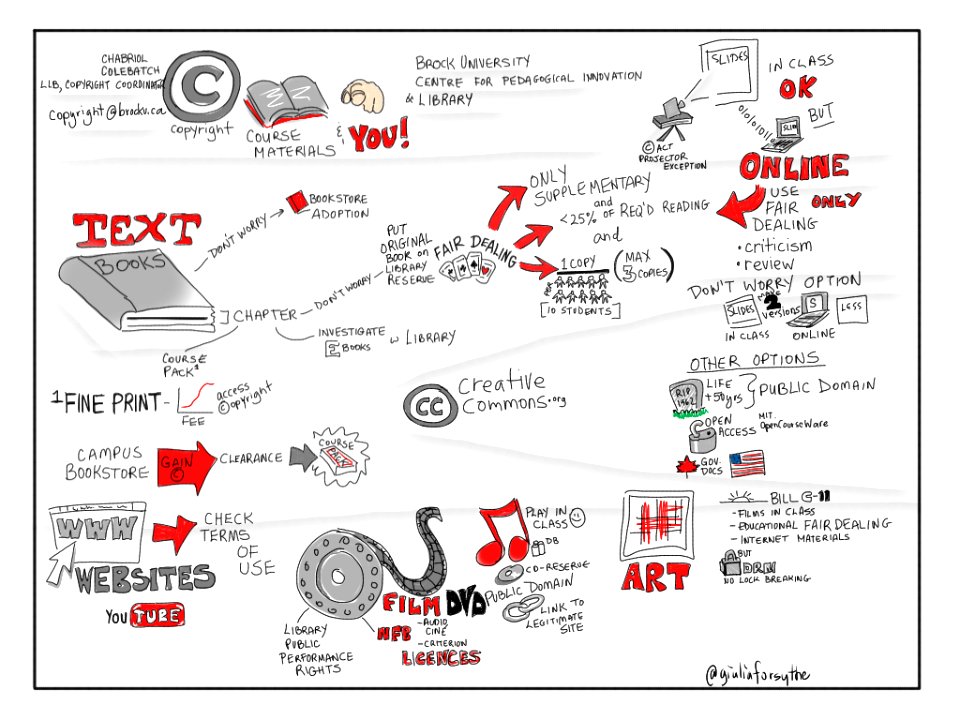 CHABRIOL
COLEBATCH
LIB, COPYRIGHT COORDINATOR
copyright@brocku.ca
C
copyright
COURSE
MATERIALS
&
YOU!
BROCK UNIVERSITY
CENTRE FOR PEDAGOGICAL INNOVATION
& LIBRARY
SLIDES
IN CLASS
OK
BUT
SLIDE
© ACT
PROJECTOR
EXCEPTION
ONLINE
USE
FAIR
DEALING
ONLY
• criticism
• review
DON'T WORRY OPTION
SLIDES
MAKE
2
versions
S
LESS
IN CLASS
ONLINE
TEXT
BOOKS
DON'T WORRY
BOOKSTORE
ADOPTION
] CHAPTER
DON'T WORRY
PUT
ORIGINAL
BOOK on
LIBRARY
RESERVE
FAIR DEALING
ONLY
SUPPLEMENTARY
and
<25% OF REQ'D READING
and
1 COPY
(MAX
3 COPIES)
[10 STUDENTS]
INVESTIGATE
E BOOKS
w LIBRARY
COURSE
PACK¹
¹FINE PRINT -
FEE
access
©opyright
CC
Creative
Commons.org
OTHER OPTIONS
R.I.P.
1962
LIFE
+50yrs
PUBLIC DOMAIN
OPEN
ACCESS
MIT.
OpenCourseWare
GOV.
DOCS
CAMPUS
BOOKSTORE
GAIN
©
CLEARANCE
COURSE
PACK
WWW
WEBSITES
CHECK
TERMS
OF
USE
YouTUBE
LIBRARY
PUBLIC
PERFORMANCE
RIGHTS
FILM
DVD
NFB
- AUDIO
CINE
- CRITERION
LICENCES
PLAY IN
CLASS
DB
CD-RESERVE
PUBLIC DOMAIN
LINK TO
LEGITIMATE
SITE
ART
BILL C-11
- FILMS IN CLASS
- EDUCATIONAL FAIR DEALING
- INTERNET MATERIALS
BUT
DRM
NO LOCK BREAKING
@giuliaforsythe